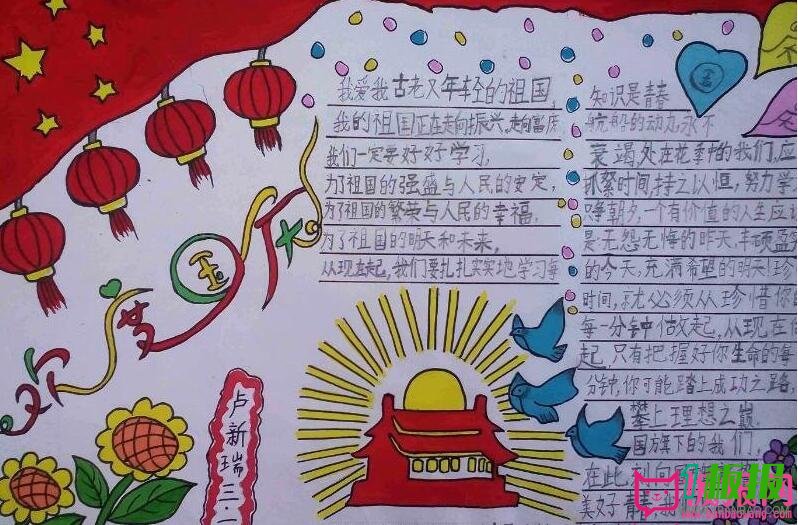 欢度国庆
卢新瑞
三.一
我爱我古老又年轻的祖国,
我的祖国正在走向振兴,走向富庶
我们一定要好好学习,
为了祖国的强盛与人民的安定,
为了祖国的繁荣与人民的幸福,
为了祖国的明天和未来,
从现在起,我们要扎扎实实地学习每
知识是青春
航船的动力永不
衰竭,处在花季中的我们,应
抓紧时间,持之以恒,努力学
争朝夕,一个有价值的人生应
是无怨无悔的昨天,丰硕盈
的今天,充满希望的明天!珍
时间,就必须从珍惜你
每一分钟做起,从现在
起,只有把握好你生命的每
分钟,你可能踏上成功之路,
攀上理想之巅.
国旗下的我们,
在此刻向
美好青春
板报